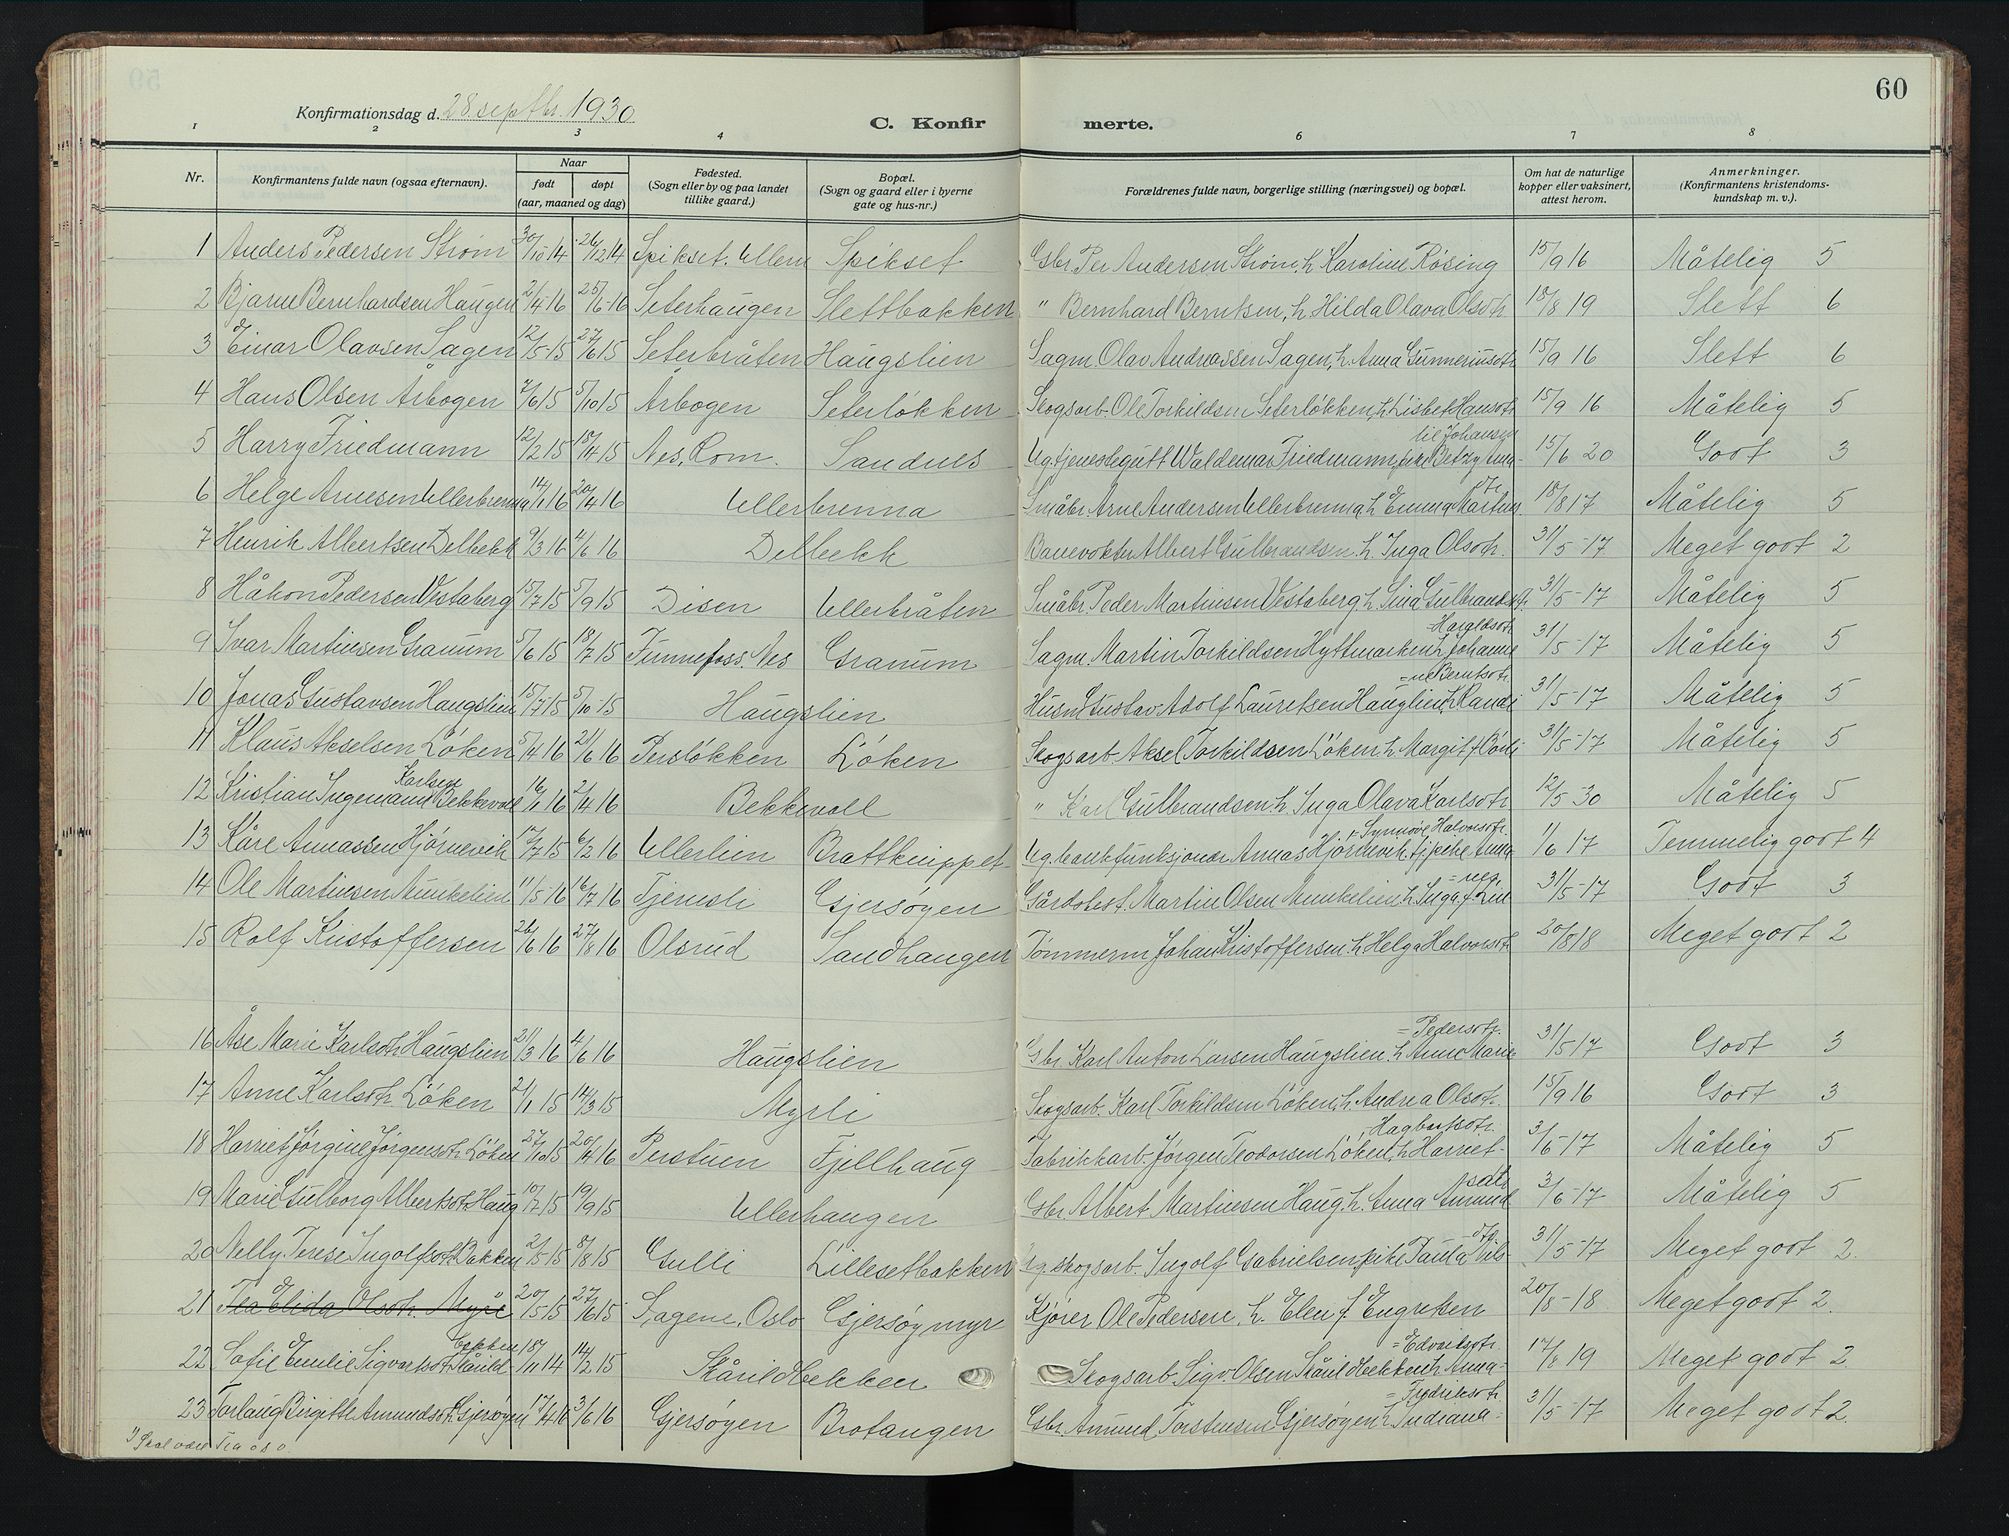 60
Konfirmationsdag d. 28 septbr. 1930
C. Konfirmerte.
1 2 3 4 6 7 8
Nr. Konfirmantens fulde navn (ogsaa efternavn). Naar født døpt (aar, maaned og dag) Fødested. (Sogn eller by og paa landet tillike gaard.) Bopæl. (Sogn og gaard eller i byerne gate og hus-nr.) Forældrenes fulde navn, borgerlige stilling (næringsvei) og bopæl. Om hat de naturlige kopper eller vaksinert, attest herom. Anmerkninger. (Konfirmantens kristendoms-kundskap m. v.).
1 Anders Pedersen Strøm 30/10 14 26/12 14 Spikset. Ullern Spikset Gbr. Per Andersen Strøm. h Karoline Røsing 15/9 16 Måtelig 5
2 Bjarne Bernhardsen Haugen 2/4-16 25/6-16 Seterhaugen Slettbakken " Bernhard Berntsen, h Hilda Olava Olsdtr 18/8 19 Slett 6
3 Einar Olavsen Sagen 12/5-15 27/6 15 Seterbråten Haugslien Sagm. Olav Andreassen Sagen, h. Anna Gunneriusdtr 15/9 16 Slett 6
4 Hans Olsen Årbogen 7/6 15 5/10 15 Årbogen Seterløkken Skogsarb. Ole Torkildsen Seterløkken, h Lisbet Hansdtr 15/9 16 Måtelig 5
5 Harry Friedmann 12/2 15 18/4 15 Nes, Rom. Sandnes Ug. tjenestegutt Waldemar Friedmann, pike Betzy Anna- til Johansen 15/6 20 Godt 3
6 Helge Arnesen Ullerbrenna 14/1 16 20/4 16 Ullerbrenna Småbr. Arne Andersen Ullerbrenna, h Emma Martins dtr 18/8 17 Måtelig 5
7 Henrik Albertsen Delbekk 9/3 16 4/6 16 Delbekk Banevokter Albert Gulbrandsen. h Inga Olsdtr. 31/5-17 Meget godt 2
8 Håkon Pedersen Vestaberg 15/7 15 5/9 15 Disen Ullerbråten Småbr Peder Martinsen Vestaberg h Sina Gulbrandsdtr. 31/5-17 Måtelig 5
9 Ivar Martinsen Granum 5/6 15 18/7 15 Funnefoss. Nes Granum Sagm. Martin Torkildsen Hyttmarken h Johanne =Haraldsdtr 31/5-17 Måtelig 5
10 Jonas Gustavsen Haugslien 15/7-15 5/10 15 Haugslien Husm Gustav Adolf Lauritsen Hauglien, h Randi =ne Berntsdtr. 31/5-17 Måtelig 5
11 Klaus Akselsen Løken 5/4 16 21/6 16 Persløkken Løken Skogsarb. Aksel Torkildsen Løken. h Margit f. 31/5-17 Måtelig 5
12 Kristian Ingemann Karlsen Bekkevoll 16/1 16 2/4 16 Bekkevoll " Karl Gulbrandsen. h Inga Olava Karlsdtr 12/5-30 Måtelig 5
13 Kåre Annassen Hjørnevik 17/7 15 6/2 16 Ullerlien Brattknippet Ug. bankfunksjonær Annas Hjørnevik, tj.pike Anna Synnøve Halvorsdtr. 1/6 17 Temmelig godt 4
14 Ole Martinsen Munkelien 11/5-16 16/7 16 Tjernsli Gjersøyen Gårdbest. Martin Olsen Munkelien h Inga f. Lin =nes 31/5-17 Godt 3
15 Rolf Kristoffersen 26/6 16 27/8 16 Olsrud Sandhaugen Tømmerm Johan Kristoffersen. h Helga Halvorsdtr 20/8 18 Meget godt 2
16 Åse Marie Karlsdtr Haugslien 21/3 16 4/6 16 Haugslien Gbr. Karl Anton Larsen Haugslien. h Anne Marie =Pedersdtr. 31/5 17 Godt 3
17 Anne Karlsdtr Løken 2/1 15 14/3 15 Myrli Skogsarb. Karl Torkildsen Løken, h. Andrea Olsdtr. 15/9 16 Godt 3
18 Harriet Jørgine Jørgensdtr Løken 27/10 15 20/4 16 Perstuen Fjellhaug Fabrikkarb. Jørgen Teodorsen Løken, h Harriet- -Hagbartsdtr. 3/6-17 Måtelig 5
19 Marie Gulborg Albertsdtr. Haug 10/7 15 19/9 15 Ullerhaugen Gbr. Albert Martinsen Haug. h. Anna Amund sdtr 3/6-17 Måtelig 5
20 Nelly Terese Ingolfsdtr. Bakken 2/5 15 8/8 15 Gulli Lillesetbakken Ug. skogsarb. Ingolf Gabrielsen, pike Paula Nils- dtr. 31/5-17 Meget godt 2.
21 Tea Elida Olsdtr. Myre 20/5 15 27/6 15 Sagene, Oslo Gjersøymyr Kjører Ole Pedersen, h. Elen f. Engretsen 20/8-18 Meget godt 2.
22 Sofie Emilie Sigvartsdtr Skårild bekken 18/11 14 14/2 15 Skårildbekken Skogsarb. Sigv. Olsen Skårildbekken h Anna- =Edvardsdtr. 17/8 19 Meget godt 2
23 Torlaug Birgitte Amundsdtr. Gjersøyen 17/4 16 3/6 16 Gjersøyen Brotangen Gbr. Amund Torstensen Gjersøyen h Indiana- =Fredriksdtr 31/5-17 Meget godt 2.
1) Skal være Tea o.s.v.